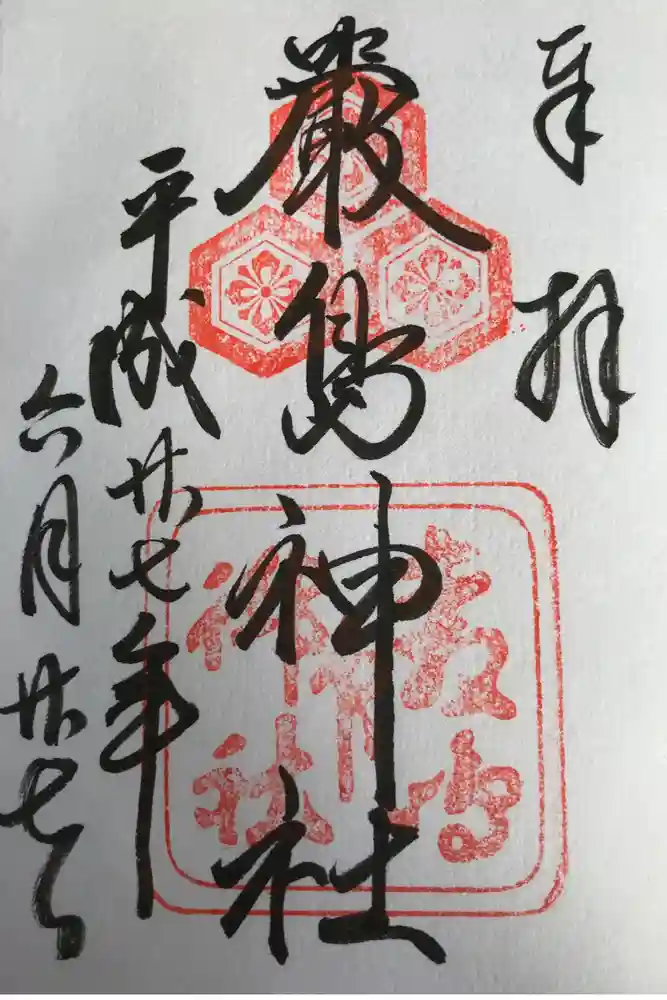 奉拝
嚴島神社
平成廿七年
六月廿七日